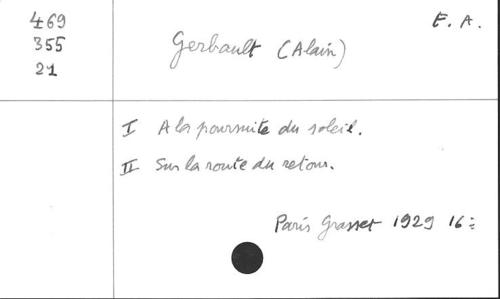 469
355
21
E. A.
Gerbault (Alain)
I A la poursuite du soleil.
II Sur la route du retour.
Paris Grasset 1929 16=